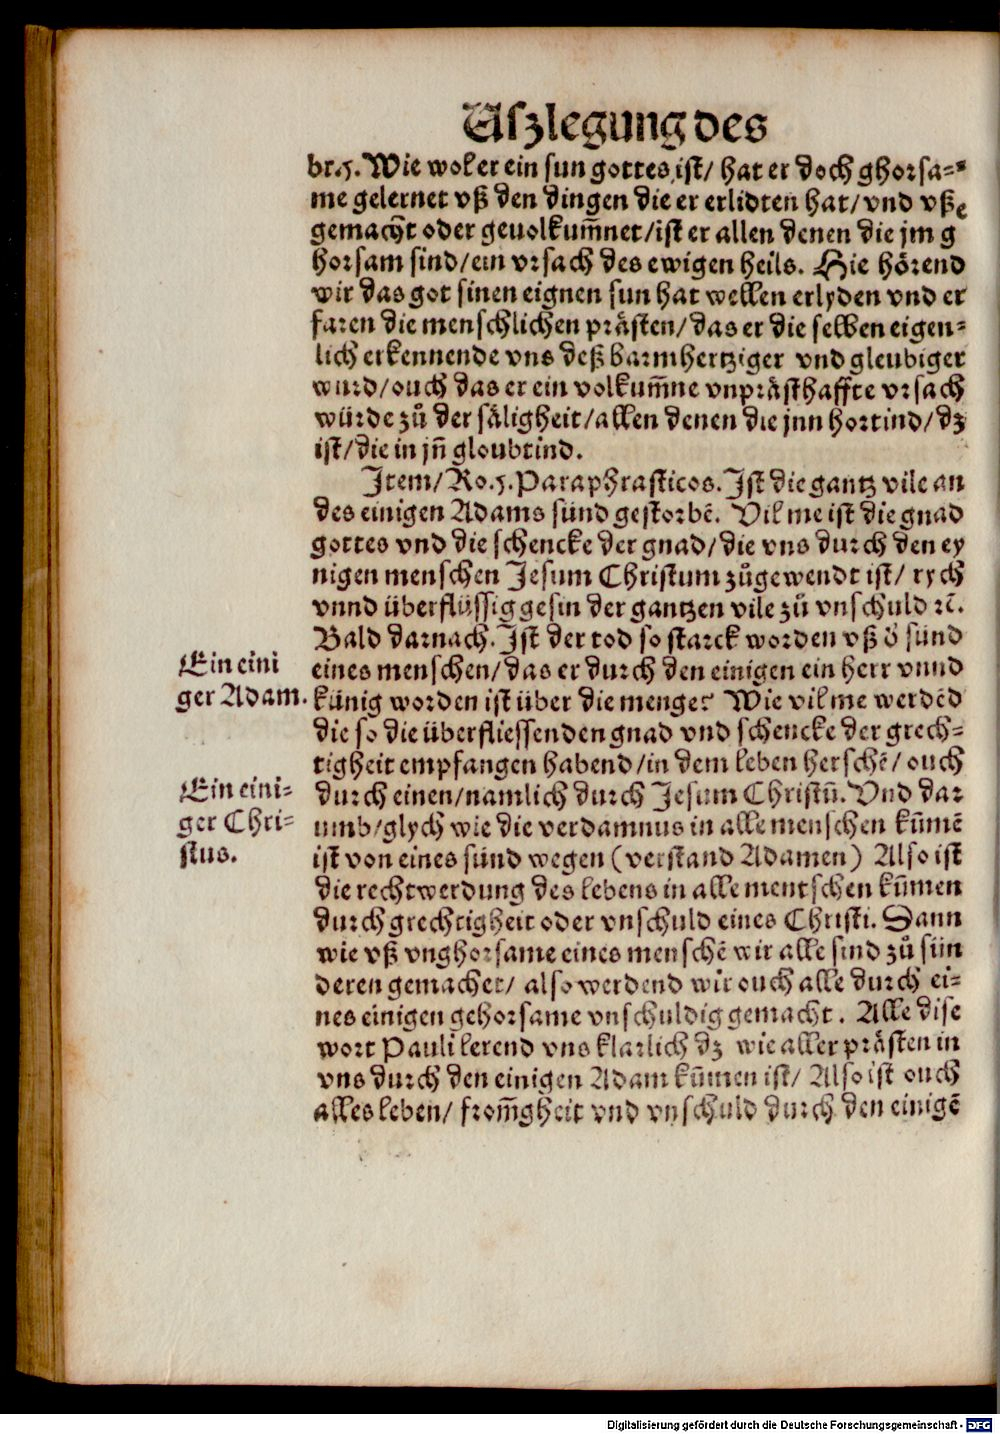 Uſzlegung des
br.5. Wie wol er ein sun gottes ist/ hat er doch ghorsa-
me gelernet vß den dingen die er erlidten hat/ vnd vß
gemacht oder geuolkum̃net/ ist er allen denen die jm g
horsam sind/ ein vrsach des ewigen heils. Hie hörend
wir das got sinen eignen sun hat wellen erlyden vnd er
faren die menschlichen prästen/ das er die selben eigen-
lich erkennende vns deß barmhertziger vnd gleubiger
wurd/ ouch das er ein volkum̃ne vnprästhaffte vrsach
würde zů der säligheit/ allen denen die jnn hortind/ dz
ist/ die in jñ gloubtind.
Item/ Ro.5. Paraphrasticos. Ist die gantz vile an
des einigen Adams sünd gestorbē. Vil me ist die gnad
gottes vnd die schencke der gnad/ die vns durch den ey
nigen menschen Jesum Christum zůgewendt ist/ rych
vnnd überflüssig gesin der gantzen vile zů vnschuld ꝛc̄.
Bald darnach. Ist der tod so starck worden vß d̾ sünd
Ein eini
eines menschen/ das er durch den einigen ein herr vnnd
ger Adam.
künig worden ist über die menge? Wie vil me werdēd
die so die überfliessenden gnad vnd schencke der grech-
tigheit empfangen habend/ in dem leben herschē/ ouch
Ein eini-
durch einen/ namlich durch Jesum Christū. Vnd dar
ger Chri-
umb/ glych wie die verdamnus in alle menschen kum̄ē
stus.
ist von eines sünd wegen (verstand Adamen) Also ist
die rechtwerdung des lebens in alle mentschen kum̄en
durch grechtigheit oder vnschuld eines Christi. Dann
wie vß vnghorsame eines menschē wir alle sind zů sün
deren gemachet/ also werdend wir ouch alle durch ei-
nes einigen gehorsame vnschuldig gemacht. Alle dise
wort Pauli lerend vns klarlich dz wie aller prästen in
vns durch den einigen Adam kum̄en ist/ Also ist ouch
alles leben/ from̃gheit vnd vnschuld durch den einigē
Digitalisierung gefördert durch die Deutsche Forschungsgemeinschaft - DFG